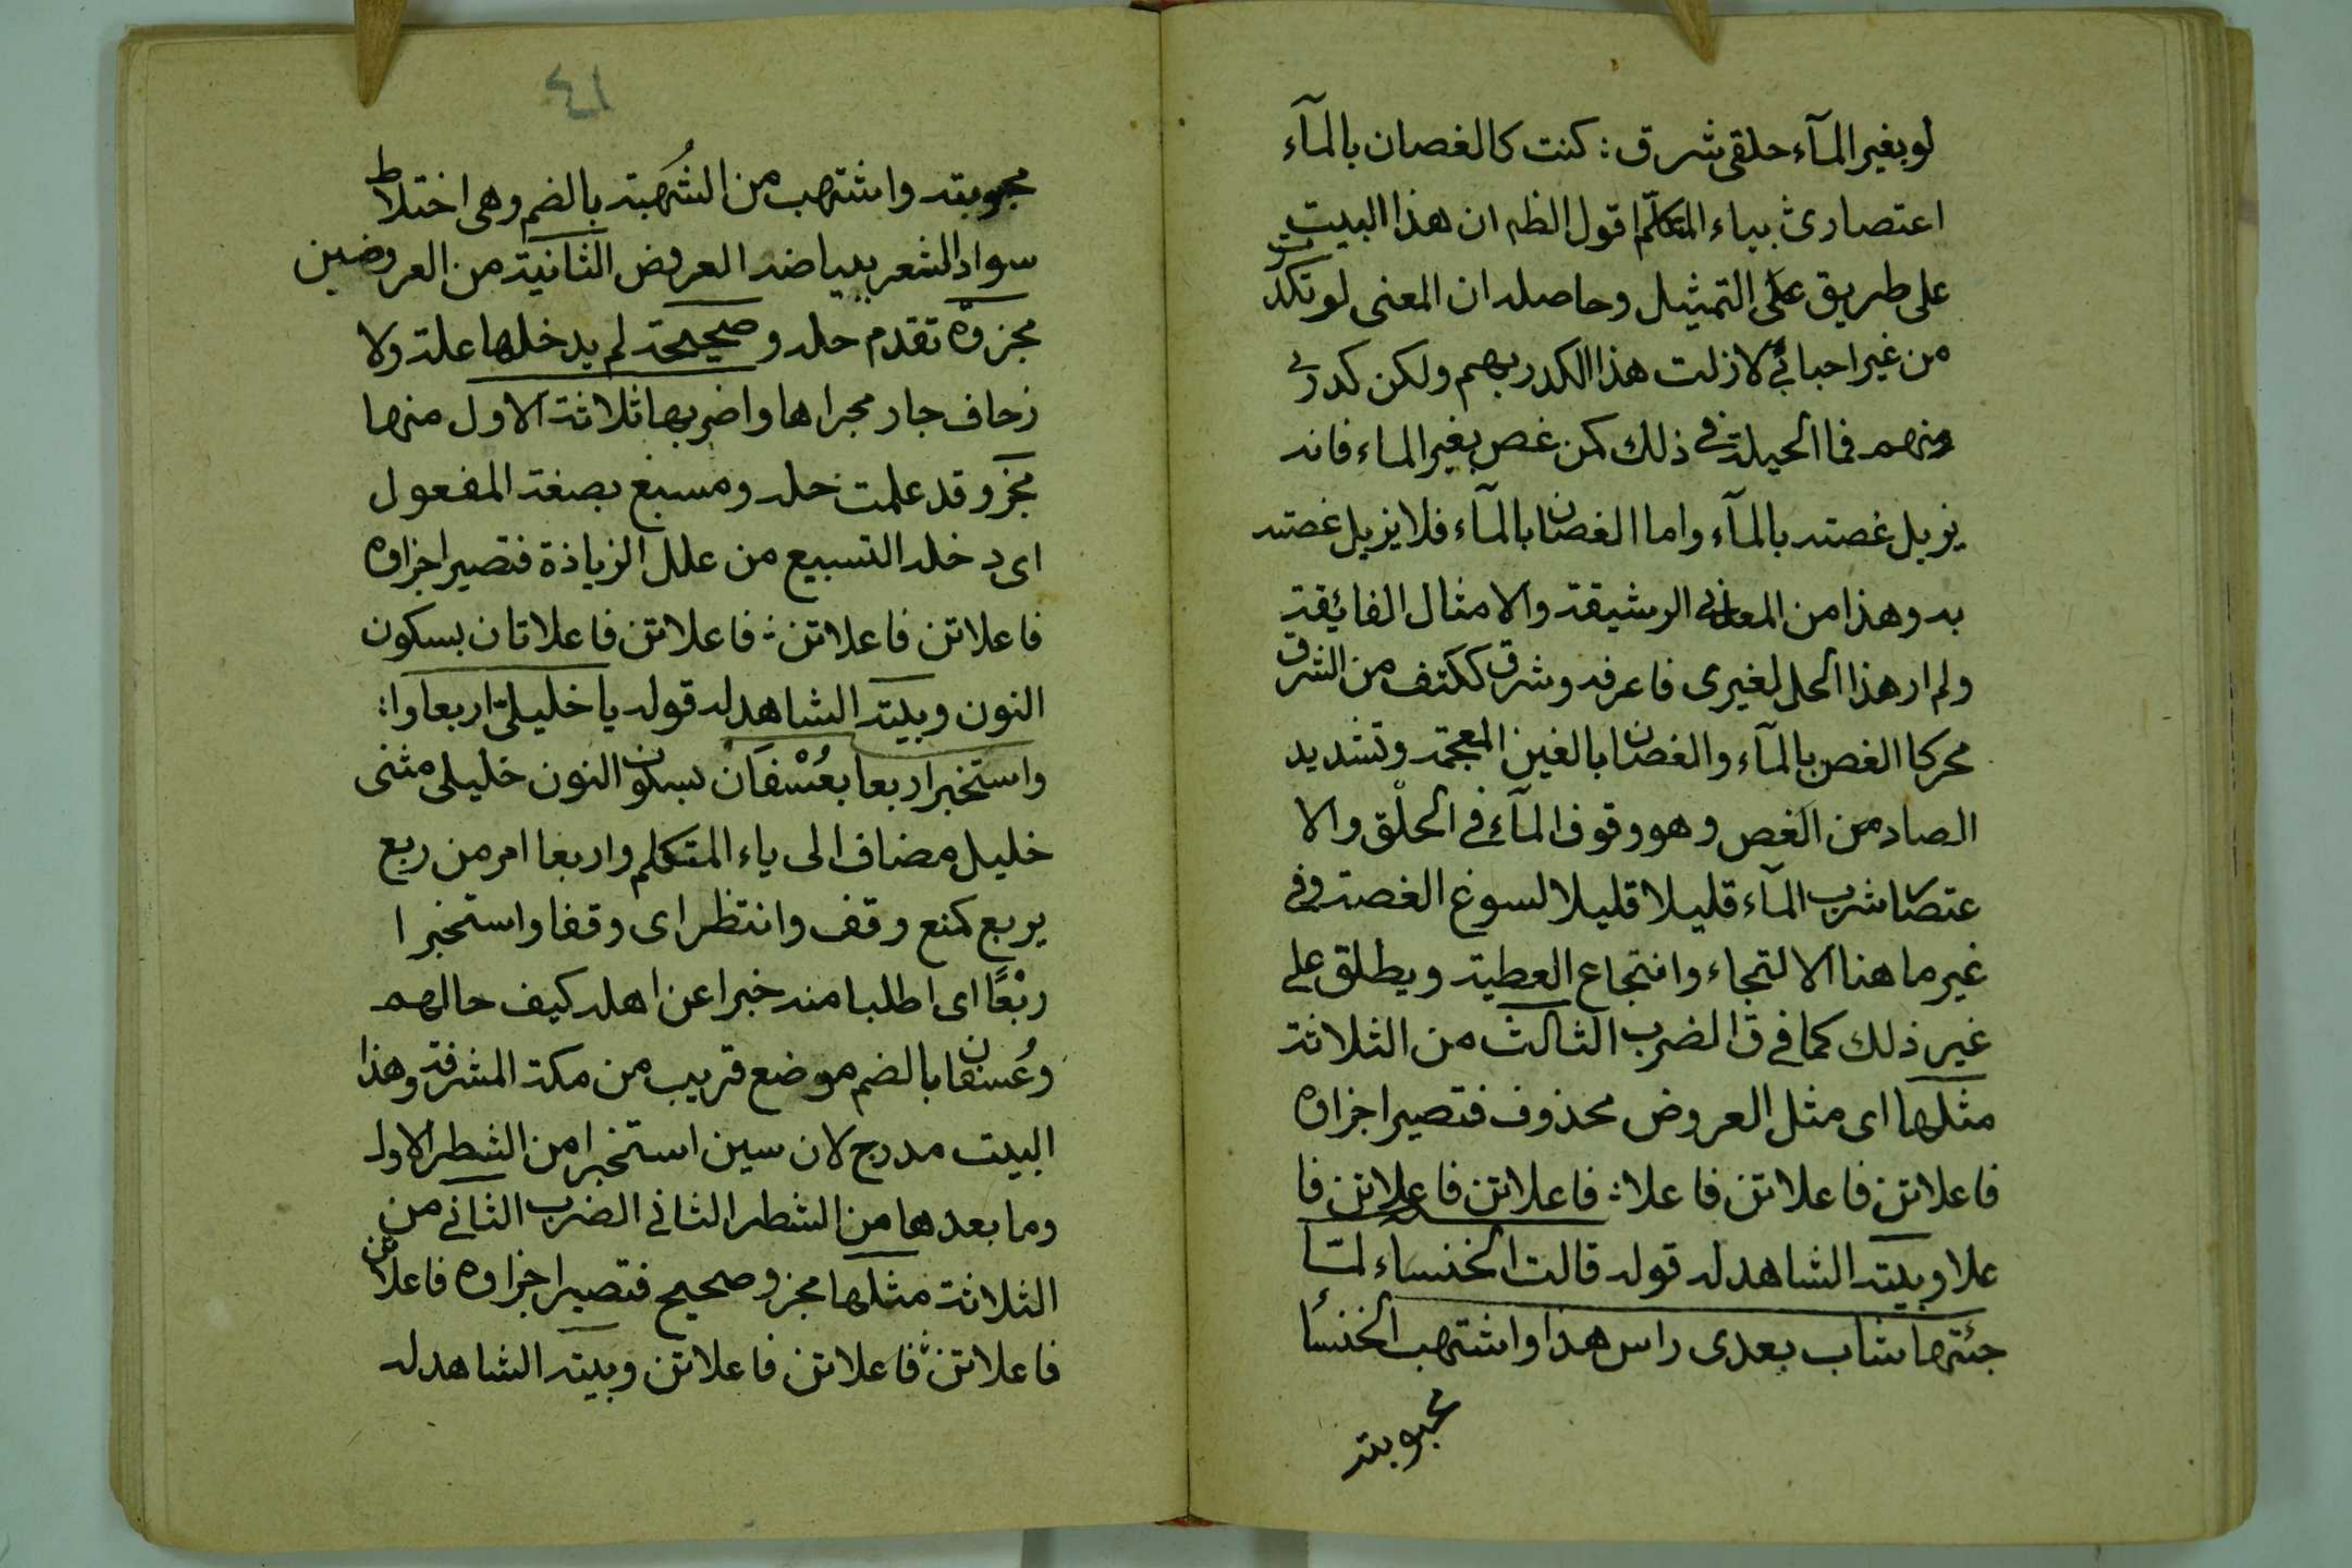 لو بغير المآء حلقى شرق : كنت كالغصان بالمآء
اعتصارى ث بياء المتكلم اقول الظ ان هذا البيت
على طريق على التمثيل وحاصله ان المعنى لو تكدرت
من غير احبائى لازلت هذا الكدر بهم ولكن كدرى
منهم فما الحيلة فى ذلك كمن غص بغير الماء فانه
يزيل غصته بالمآء واما الغصان بالمآء فلا يزيل غصته
به وهذا من المعانى الرشيقة والامثال الفائقة
ولم ار هذا الحل لغيرى فاعرفه وشرق ككتف من الشرق
محركا الغص بالمآء والغصان بالغين المعجمة وتشديد
الصاد من الغص وهو وقوف المآء فى الحلق والا
عتصار شرب المآء قليلا قليلا لسوغ الغصة وفى
غير ما هنا الالتجاء وانتجاع العطية ويطلق على
غير ذلك كما فى ق الضرب الثالث من الثلاثة
مثلها اى مثل العروض محذوف فتصير اجزاؤه
فاعلاتن فاعلاتن فاعلا : فاعلاتن فاعلاتن فا
علا وبيته الشاهد له قوله قالت الخنساء لمّا
جئتها شاب بعدى راس هذا واشتهب الخنساء
محبوبته
٤١
محبوبته واشتهب من الشُهبة بالضم وهى اختلاط
سواد الشعر ببياضه العروض الثانية من العروضين
مجزوّة تقدم حله وصحيحة لم يدخلها علة ولا
زحاف جار مجراها واضربها ثلاثة الاول منها
مجزو وقد علمت حله ومسبع بصغة المفعول
اى دخله التسبيع من علل الزيادة فتصير اجزاوه
فاعلاتن فاعلاتن : فاعلاتن فاعلاتان بسكون
النون وبيته الشاهد له قوله يا خليلىّ اربعا وا :
واستخبرا ربعا بعُسْفَانْ بسكون النون خليلى مثنى
خليل مضاف الى ياء المتكلم واربعا امر من ربع
يربع كمنع وقف وانتظر اى وقفا واستخبرا
ربْعًا اى اطلبا منه خبرا عن اهله كيف حالهم
وعُسفان بالضم موضع قريب من مكة المشرفة وهذا
البيت مدرج لان سين استخبرا من الشطر الاول
وما بعدها من الشطر الثانى الضرب الثانى من
الثلاثة مثلها مجزو صحيح فتصير اجزاوه فاعلاتن
فاعلاتن : فاعلاتن فاعلاتن وبيته الشاهد له